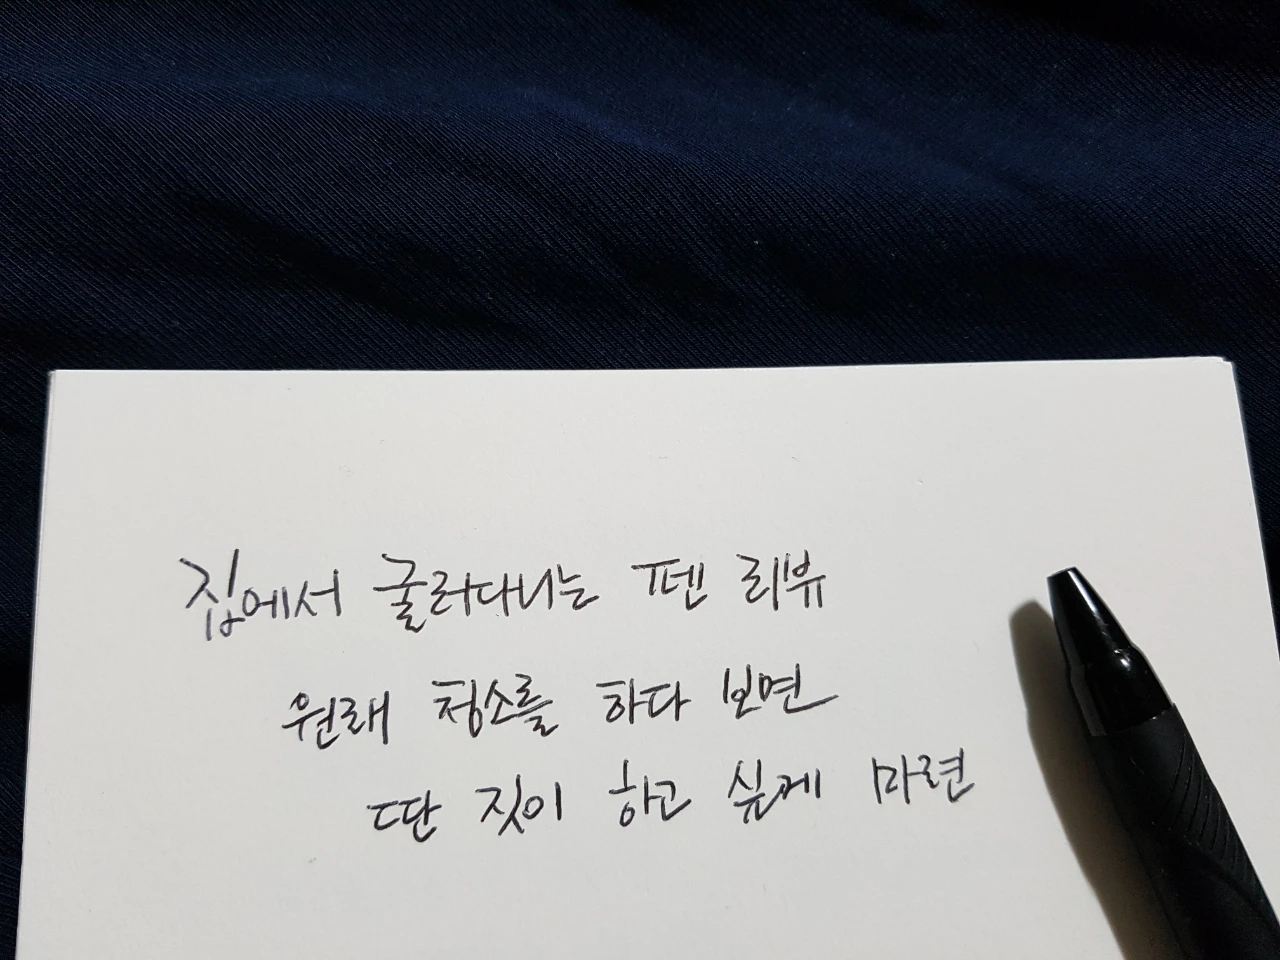 집에서 굴러다니는 펜 리뷰
원래 청소를 하다 보면
딴 짓이 하고 싶게 마련